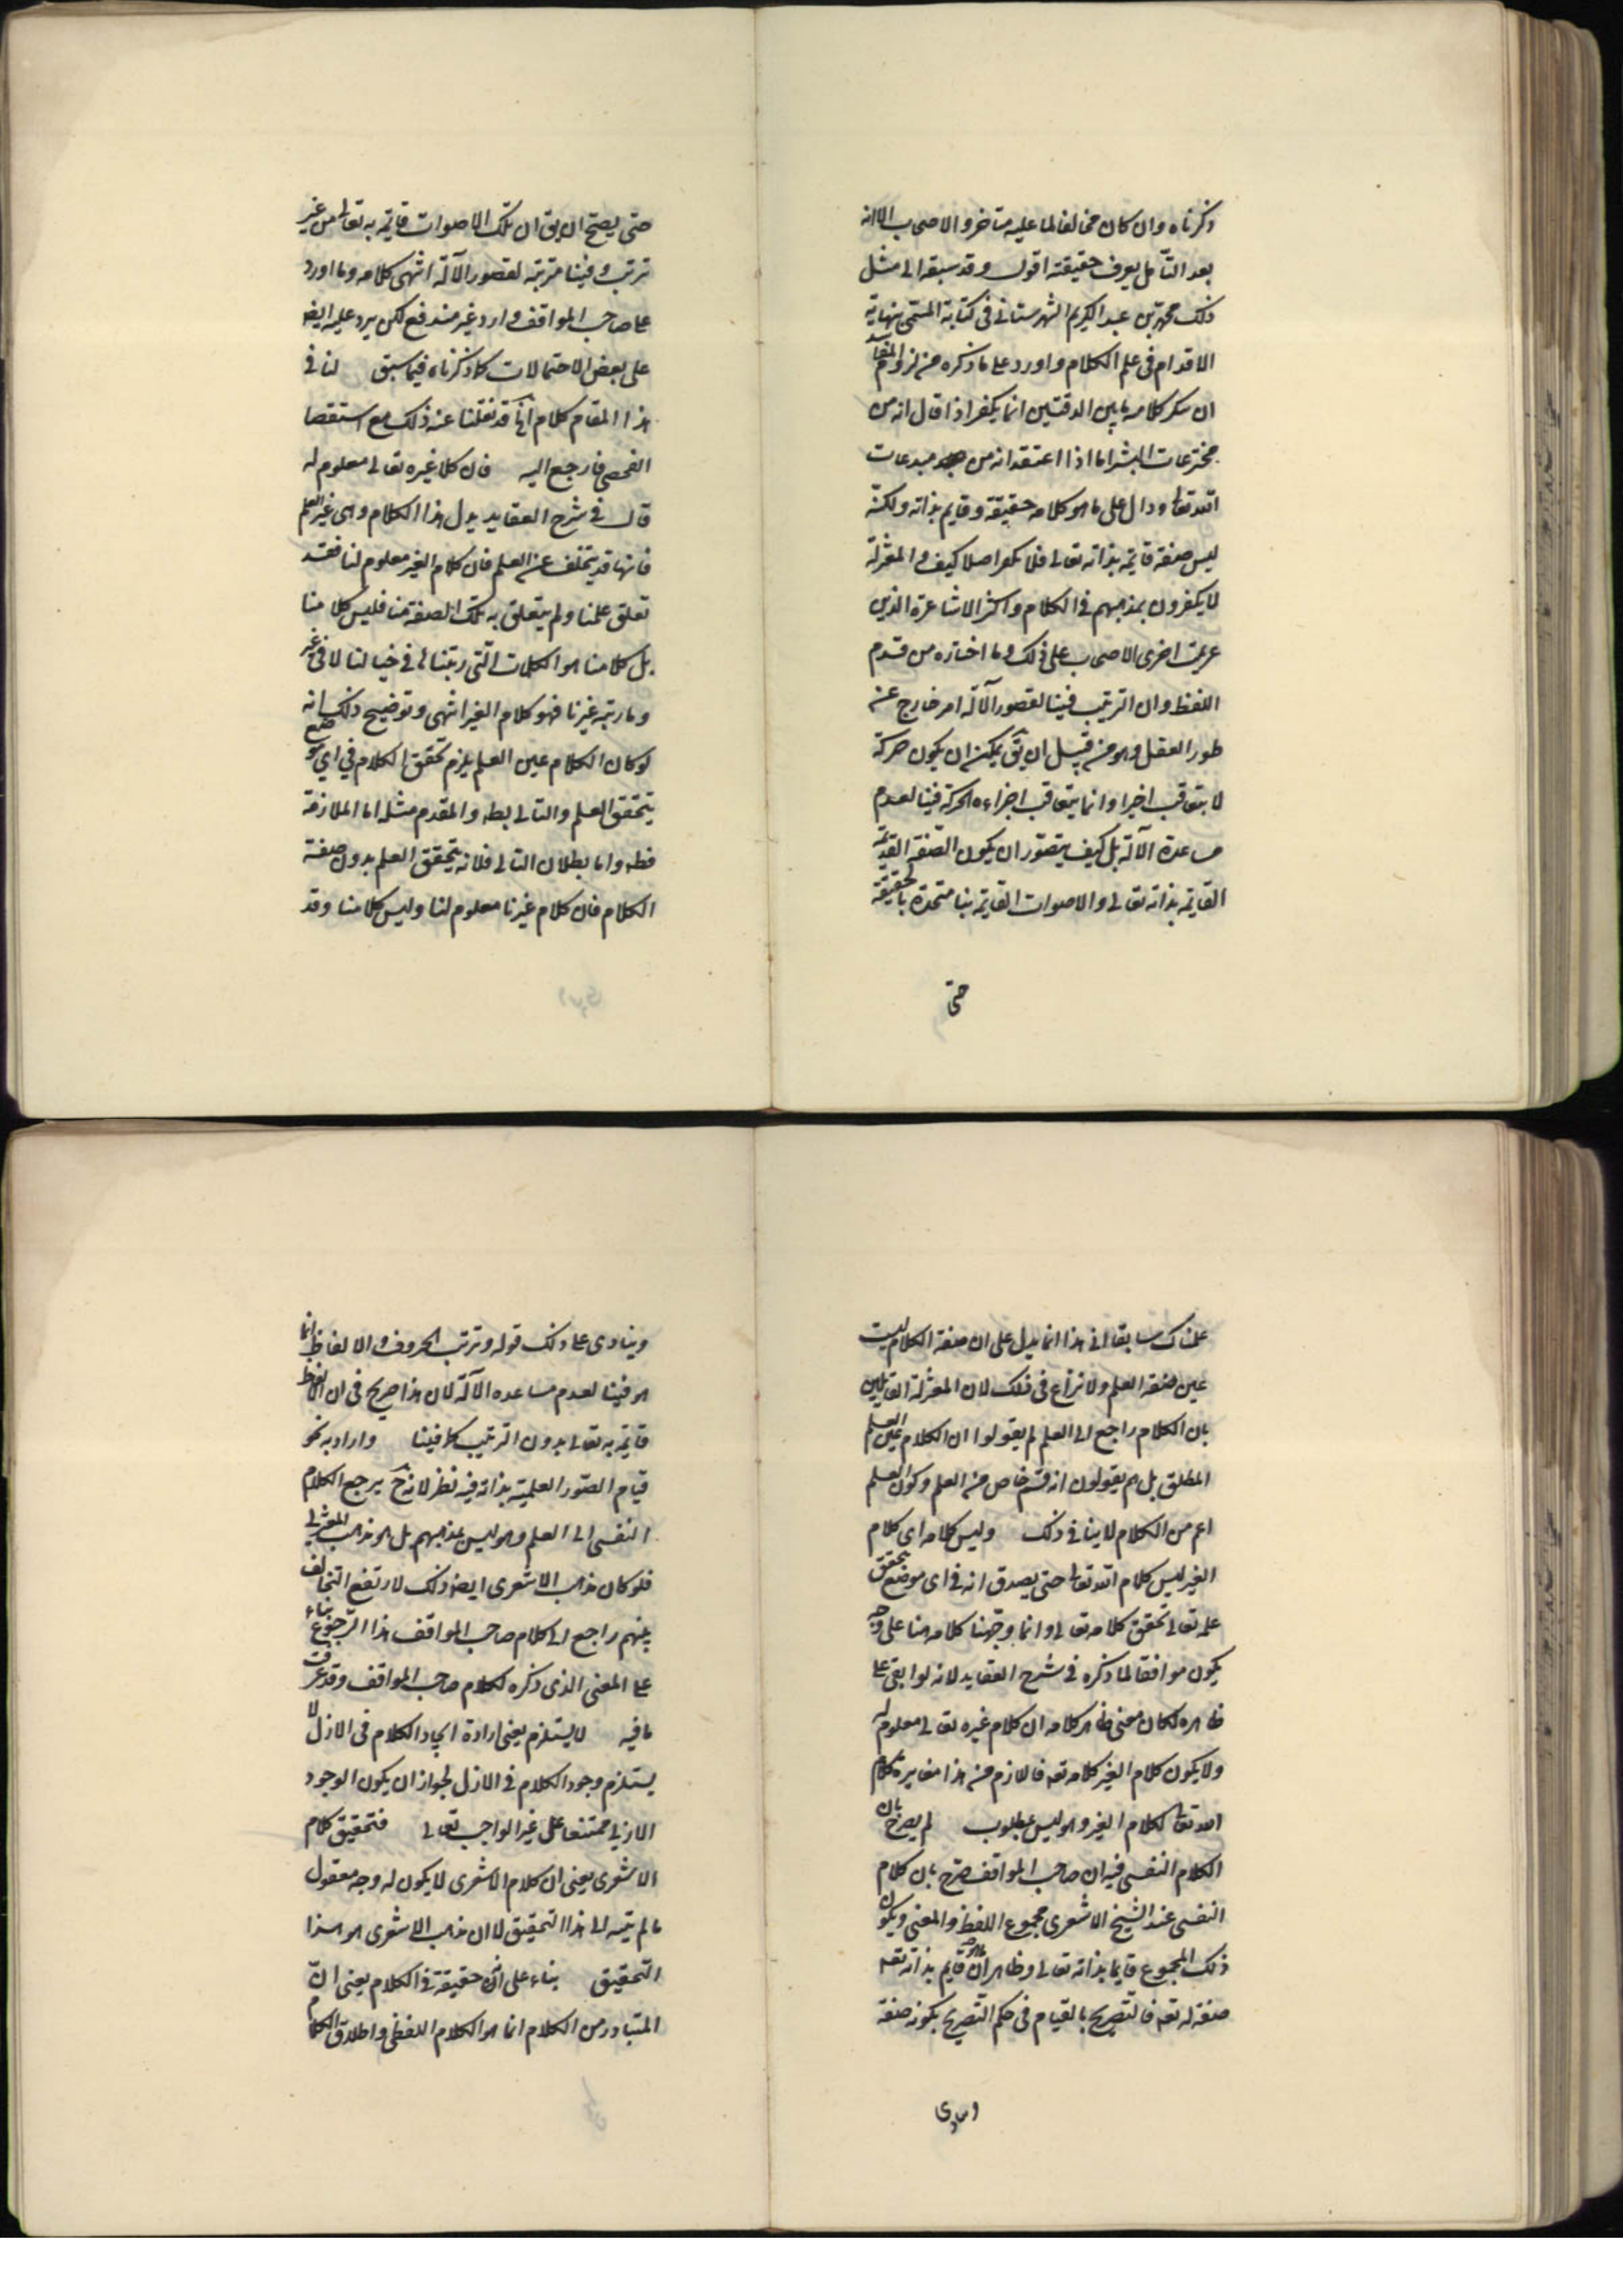 ذكرناه وان كان مخالفا لما عليه متاخروا الاصحاب الا انه
بعد التأمل يعرف حقيقته اقول وقد سبقه الى مثل
ذلك محمد بن عبد الكريم الشهرستاني في كتابه المسمى بنهاية
الاقدام في علم الكلام واورد على ما ذكره من لزوم المفاسد
ان منكر كلامه ما بين الدفتين انما يكفر اذا قال انه من
مخترعات البشر اما اذا اعتقد انه من مبدعات
الله تعالى ودال على ما هو كلامه حقيقة وقايم بذاته ولكنه
ليس صفة قايمة بذاته تعالى فلا يكفر اصلا كيف والمعتزلة
لا يكفرون بمذهبهم في الكلام واكثر الاشاعرة الذين
اخرى الاصحاب على ذلك وما اختاره من قدم
اللفظ وان الترتيب فينا لقصور الآلة امر خارج عن
طور العقل وهو من قبيل ان يق يمكن ان يكون حركة
لا يتعاقب اجزاوا وانما يتعاقب اجزاء الحركة فينا لعدم
مساعدة الآلة بل كيف يتصور ان يكون الصفة القديمة
القايمة بذاته تعالى والاصوات القايمة بنا متحدة بالحقيقة
حتى
حتى يصح ان يق ان تلك الاصوات قايمة به تعالى من غير
ترتب وفينا مترتبة لقصور الآلة انتهى كلامه وما اورد
على صاحب المواقف وارد غير مندفع لكن يرد عليه ايضا
على بعض الاحتمالات كما ذكرناه فيما سبق لنا في
هذا المقام كلام قد نقلنا عنه ذلك مع استقصا
الفحص فارجع اليه فان كلا غيره تعالى معلوم له
قال في شرح العقايد يدل هذا الكلام وهى غير العلم
فانها قد يتخلف عن العلم فان كلام الغير معلوم لنا فقد
تعلق علمنا ولم يتعلق به تلك الصفة منا فليس كلامنا
بل كلامنا هو الكلمات التى رتبناها في خيالنا لا في غير
وما رتبه غيرنا فهو كلام الغير انتهى وتوضيح ذلك انه
لو كان الكلام عين العلم يلزم تحقق الكلام في اي موضع
يتحقق العلم والتالى بط والمقدم مثله اما الملازمة
فظ واما بطلان التالى فلانه يتحقق العلم بدون صفة
الكلام فان كلام غيرنا معلوم لنا وليس كلامنا وقد
علمناك سابقا ان هذا انما يدل على ان صفة الكلام ليست
عين صفة العلم ولا نزاع في ذلك لان المعتزلة القايلين
بان الكلام راجع الى العلم لم يقولوا ان الكلام عين العلم
المطلق بل هم يقولون انه قسم خاص من العلم وكون العلم
اعم من الكلام لا ينافي ذلك وليس كلامه اى كلام
الغير ليس كلام الله تعالى حتى يصدق انه في اى موضع تحقق
علمه تعالى تحقق كلامه تعالى وانما وجهنا كلامه هنا على وجه
يكون موافقا لما ذكره في شرح العقايد لانه لو ابقى على
ظاهره لكان معنى ظاهر كلامه ان كلام غيره تعالى معلوم له
ولا يكون كلام الغير كلامه تعه فاللازم من هذا مغايرة كلام
الله تعالى لكلام الغير وهو ليس بمطلوب لم يصرح بان
الكلام النفسى فيه ان صاحب المواقف صرح بان كلام
النفسى عند الشيخ الاشعرى مجموع اللفظ والمعنى ويكون
ذلك المجموع قايما بذاته تعالى وظاهر ان قايم بذاته تعه
صفة له تعه فالتصريح بالقيام في حكم التصريح بكونه صفة
وينادى
وينادى على ذلك قوله وترتب الحروف والالفاظ انما
هو فينا لعدم مساعدة الآلة لان هذا صريح في ان الالفاظ
قايمة به تعالى بدون الترتيب كما فينا واراد به نحو
قيام الصور العلمية بذاته فيه نظر لانه ح يرجع الكلام
النفسى الى العلم وهو ليس بمذهبهم بل هو مذهب المعتزلى
فلو كان مذهب الاشعرى ايضا ذلك لارتفع التخالف
بينهم راجع الى كلام صاحب المواقف هذا الرجوع بناء
على المعنى الذى ذكره لكلام صاحب المواقف وقد عرفت
ما فيه لا يستلزم يعنى ارادة ايجاد الكلام في الازل لا
يستلزم وجود الكلام في الازل لجواز ان يكون الوجود
الازلى ممتنعا على غير الواجب تعالى فتحقيق كلام
الاشعرى يعنى ان كلام الاشعرى لا يكون له وجه معقول
ما لم يتبه الى هذا التحقيق لا ان مذهب الاشعرى هو هذا
التحقيق بناء على انه حقيقة في الكلام يعنى ان
المتبادر من الكلام انما هو الكلام اللفظى واطلاق الكلام